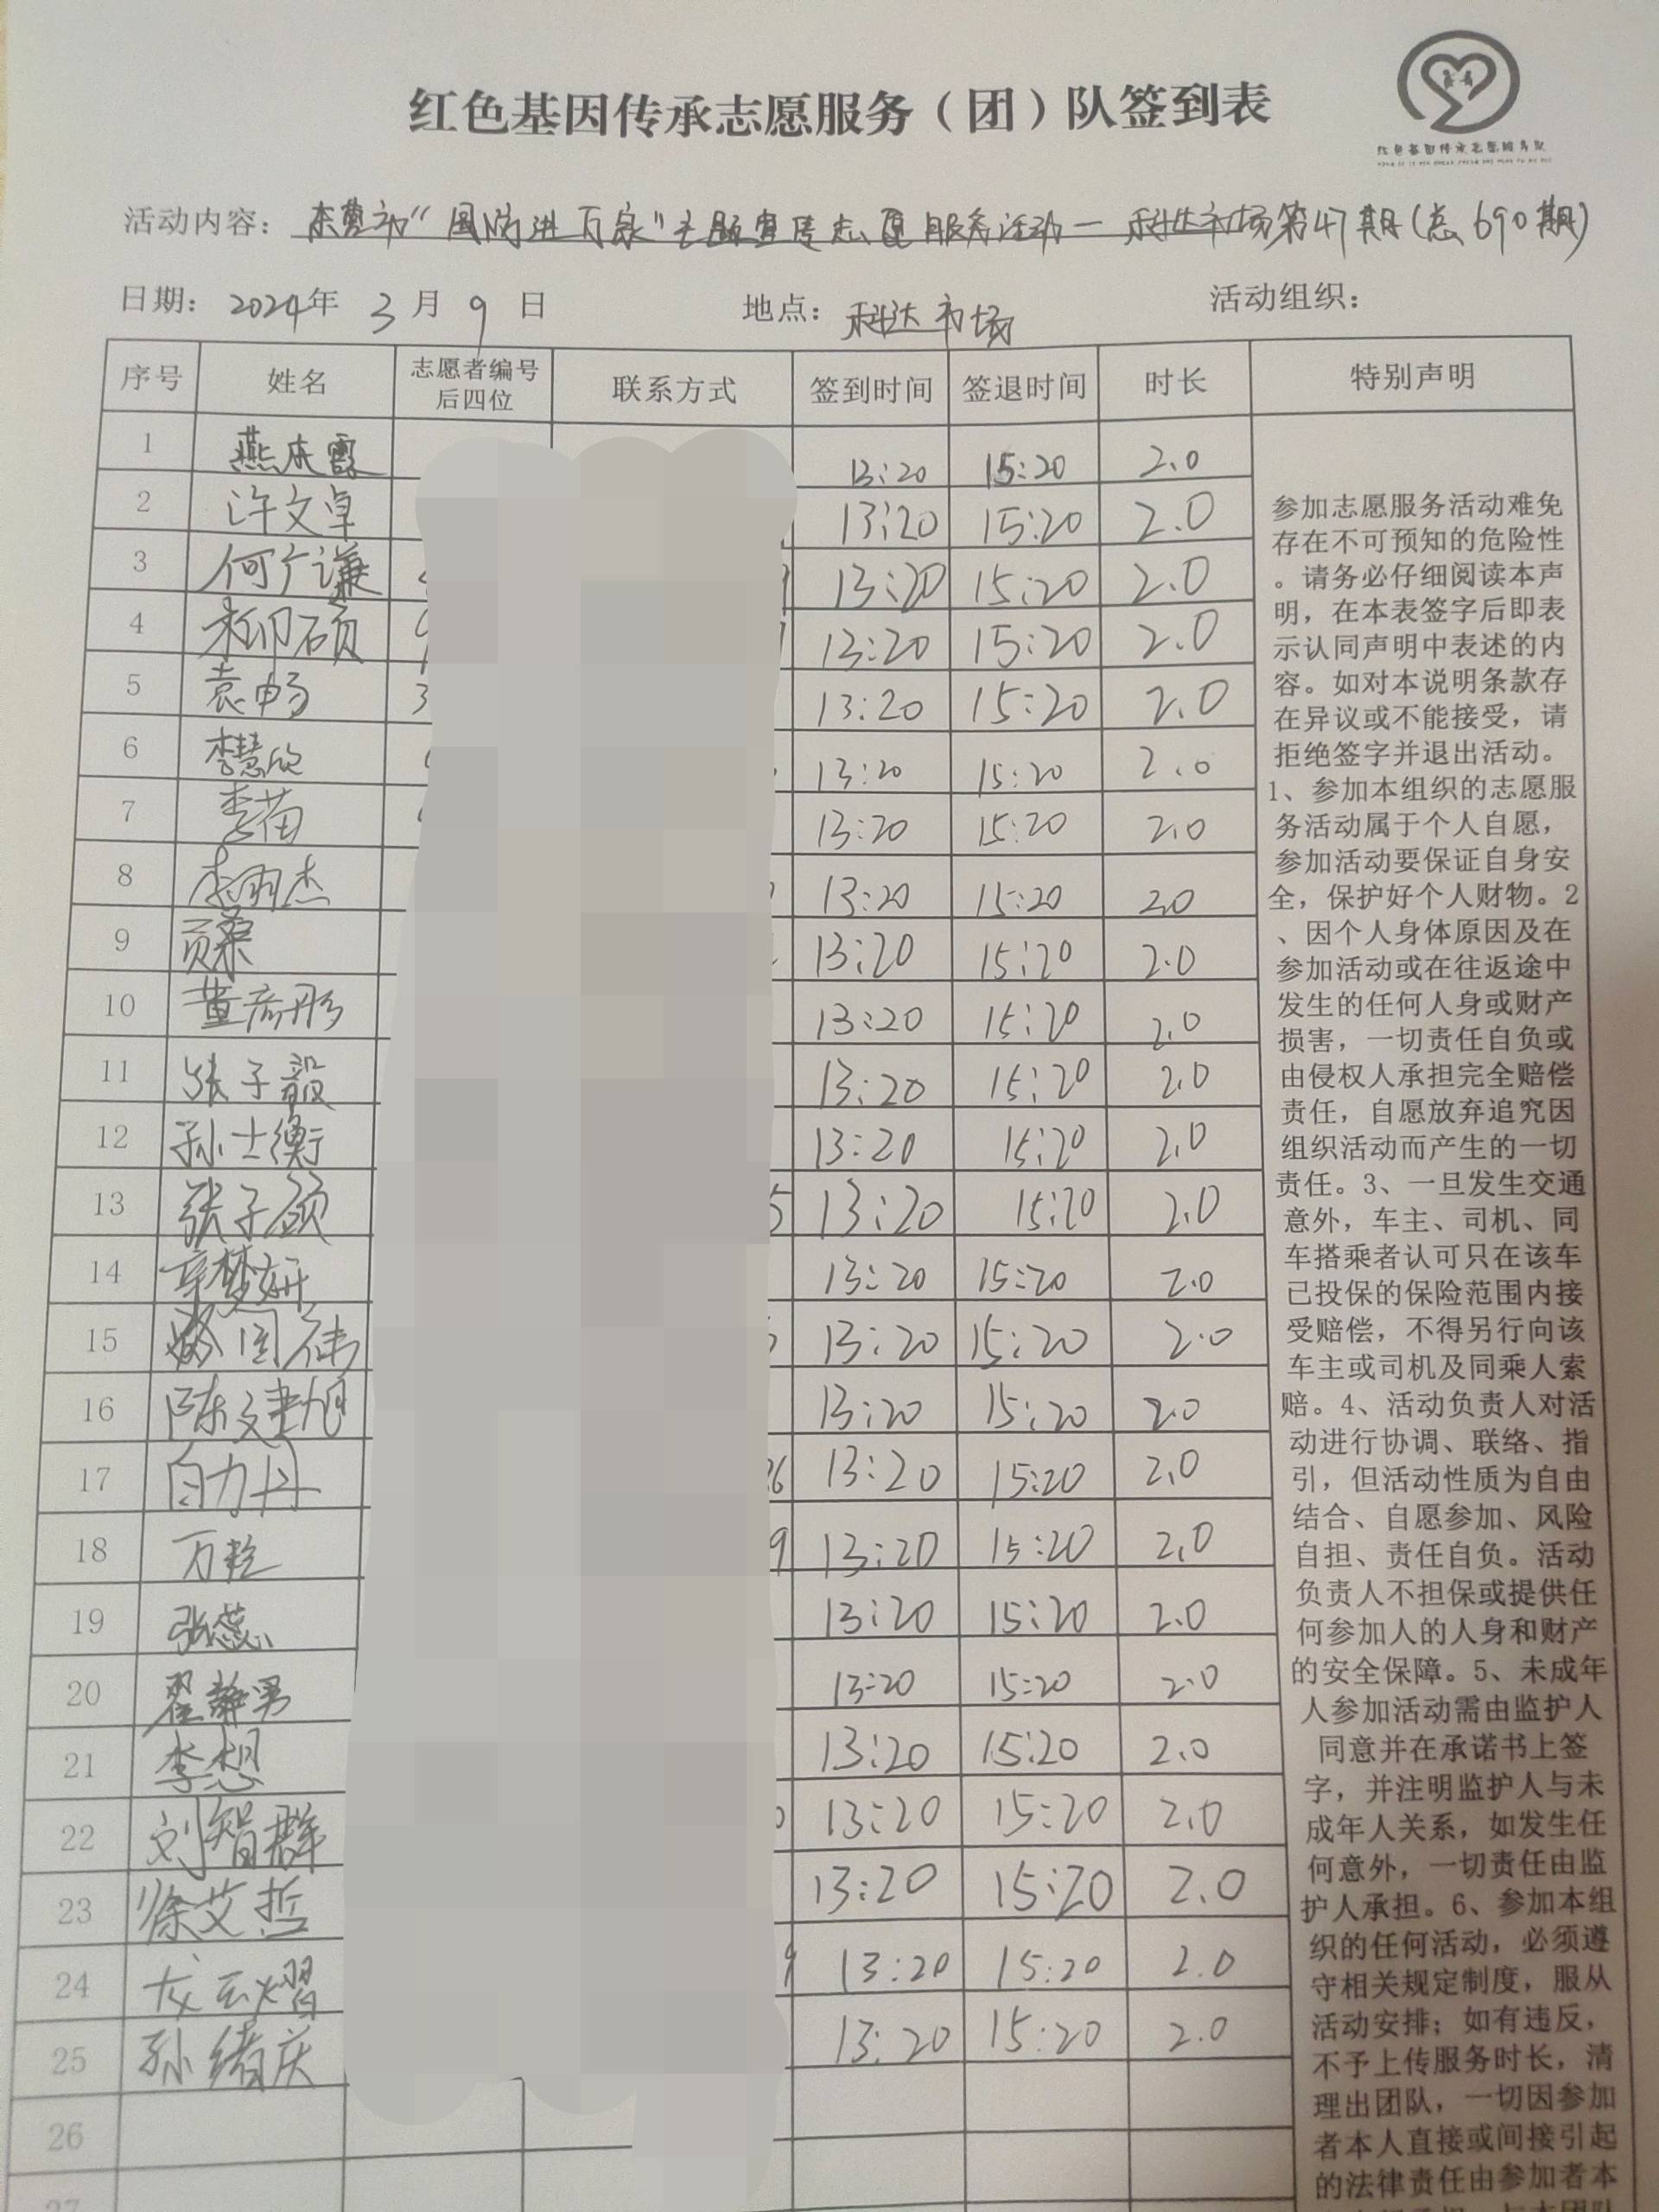 红色基因传承志愿服务（团）队签到表
红色基因传承志愿服务队
活动内容：东营市“国防进万家”主题宣传志愿服务活动—科达市场第47期（总690期）
日期：2024年3月9日 地点：科达市场 活动组织：
序号 姓名 志愿者编号后四位 联系方式 签到时间 签退时间 时长 特别声明
1 燕庆霞 13:20 15:20 2.0
2 许文卓 13:20 15:20 2.0
3 何广谦 13:20 15:20 2.0
4 柳硕 13:20 15:20 2.0
5 袁畅 3 13:20 15:20 2.0
6 李慧欣 13:20 15:20 2.0
7 李苗 13:20 15:20 2.0
8 李羽杰 13:20 15:20 2.0
9 13:20 15:20 2.0
10 董彦彤 13:20 15:20 2.0
11 张子毅 13:20 15:20 2.0
12 孙士衡 13:20 15:20 2.0
13 张子颀 5 13:20 15:20 2.0
14 辛梦妍 13:20 15:20 2.0
15 国伟 13:20 15:20 2.0
16 陈建旭 13:20 15:20 2.0
17 白力丹 86 13:20 15:20 2.0
18 万粒 9 13:20 15:20 2.0
19 张蕊 13:20 15:20 2.0
20 翟静男 13:20 15:20 2.0
21 李想 13:20 15:20 2.0
22 刘智群 13:20 15:20 2.0
23 徐艾哲 13:20 15:20 2.0
24 龙云熠 9 13:20 15:20 2.0
25 孙绪庆 13:20 15:20 2.0
26
27
参加志愿服务活动难免
存在不可预知的危险性
。请务必仔细阅读本声
明，在本表签字后即表
示认同声明中表述的内
容。如对本说明条款存
在异议或不能接受，请
拒绝签字并退出活动。
1、参加本组织的志愿服
务活动属于个人自愿，
参加活动要保证自身安
全，保护好个人财物。2
、因个人身体原因及在
参加活动或在往返途中
发生的任何人身或财产
损害，一切责任自负或
由侵权人承担完全赔偿
责任，自愿放弃追究因
组织活动而产生的一切
责任。3、一旦发生交通
意外，车主、司机、同
车搭乘者认可只在该车
已投保的保险范围内接
受赔偿，不得另行向该
车主或司机及同乘人索
赔。4、活动负责人对活
动进行协调、联络、指
引，但活动性质为自由
结合、自愿参加、风险
自担、责任自负。活动
负责人不担保或提供任
何参加人的人身和财产
的安全保障。5、未成年
人参加活动需由监护人
同意并在承诺书上签
字，并注明监护人与未
成年人关系，如发生任
何意外，一切责任由监
护人承担。6、参加本组
织的任何活动，必须遵
守相关规定制度，服从
活动安排；如有违反，
不予上传服务时长，清
理出团队，一切因参加
者本人直接或间接引起
的法律责任由参加者本